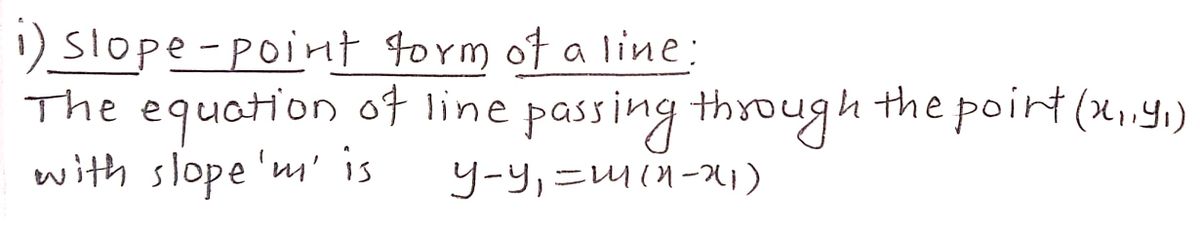 i) slope-point form of a line:
The equation of line passing through the point (x₁,y₁)
with slope 'm' is y-y₁=m(x-x₁)